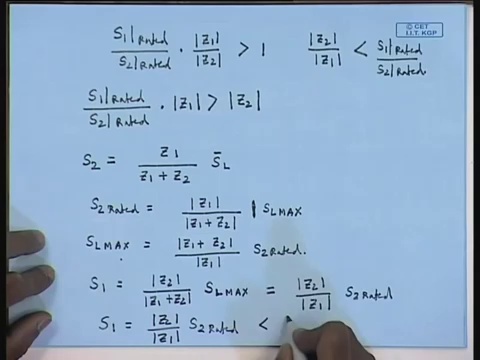 © CET
I.I.T. KGP
S1|Rated / S2|Rated · |Z1| / |Z2| > 1    |Z2| / |Z1| < S1|Rated / S2|Rated.
S1|Rated / S2|Rated · |Z1| > |Z2|
S2 = Z1 / Z1 + Z2 S̄L
S2 Rated = |Z1| / |Z1 + Z2| | SLMAX
SLMAX = |Z1 + Z2| / |Z1| S2 Rated.
S1 = |Z2| / |Z1 + Z2| SLMAX = |Z2| / |Z1| S2 Rated
S1 = |Z2| / |Z1| S2 Rated <